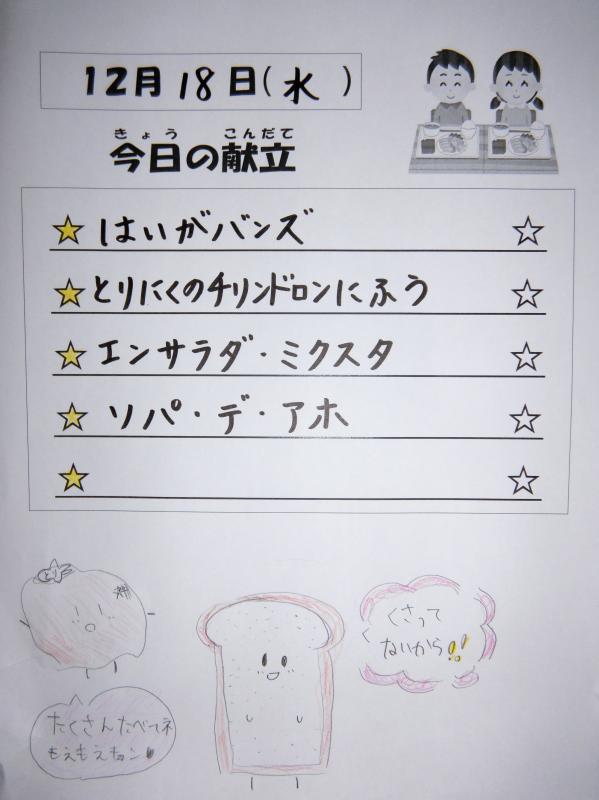 12月18日(水)
きょう こんだて
今日の献立
はいがバンズ
とりにくのチリンドロンにふう
エンサラダ・ミクスタ
ソパ・デ・アホ
くさって
ないから!!
たくさんたべてネ
もえもえキュン